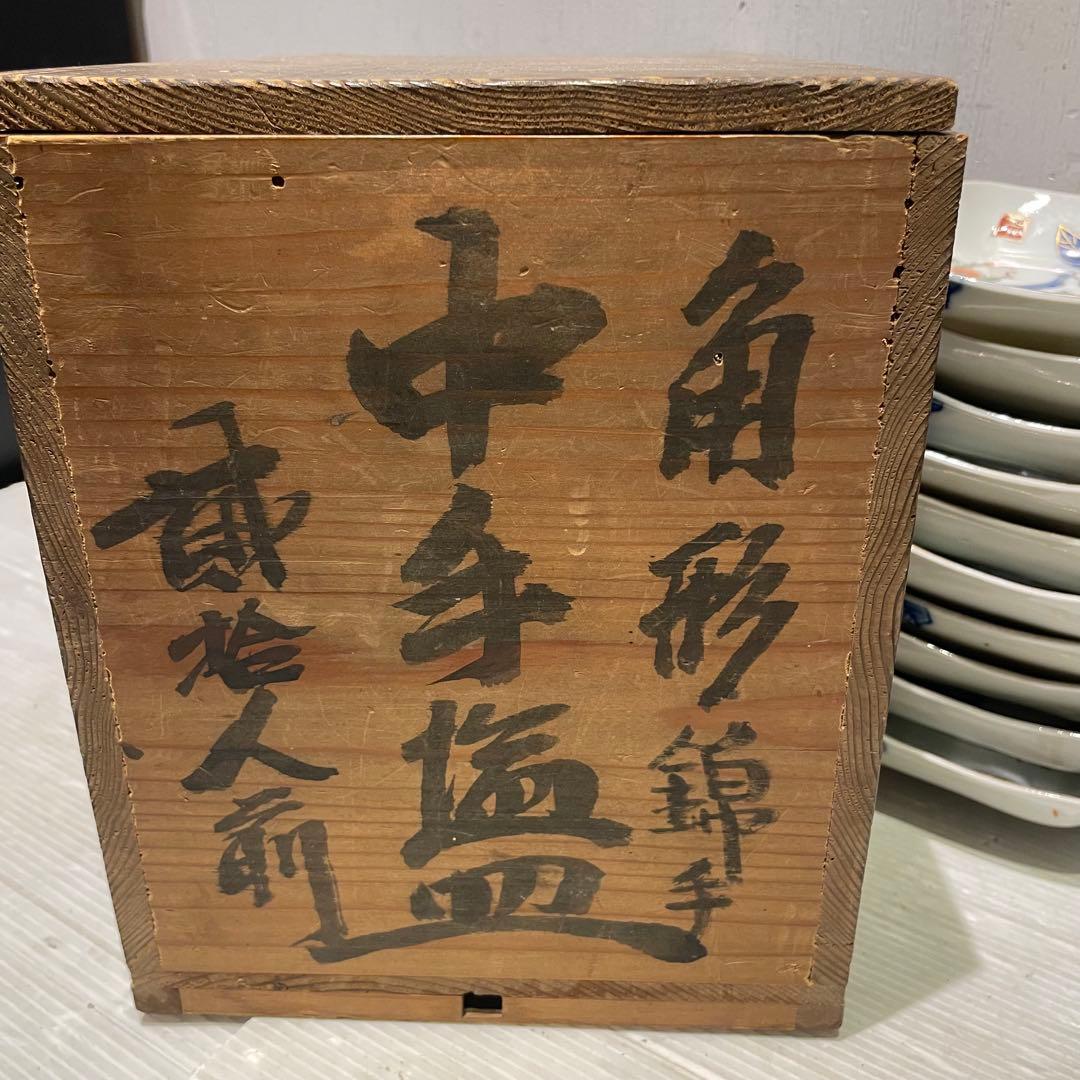 角形錦手
中手塩皿
貳拾人前